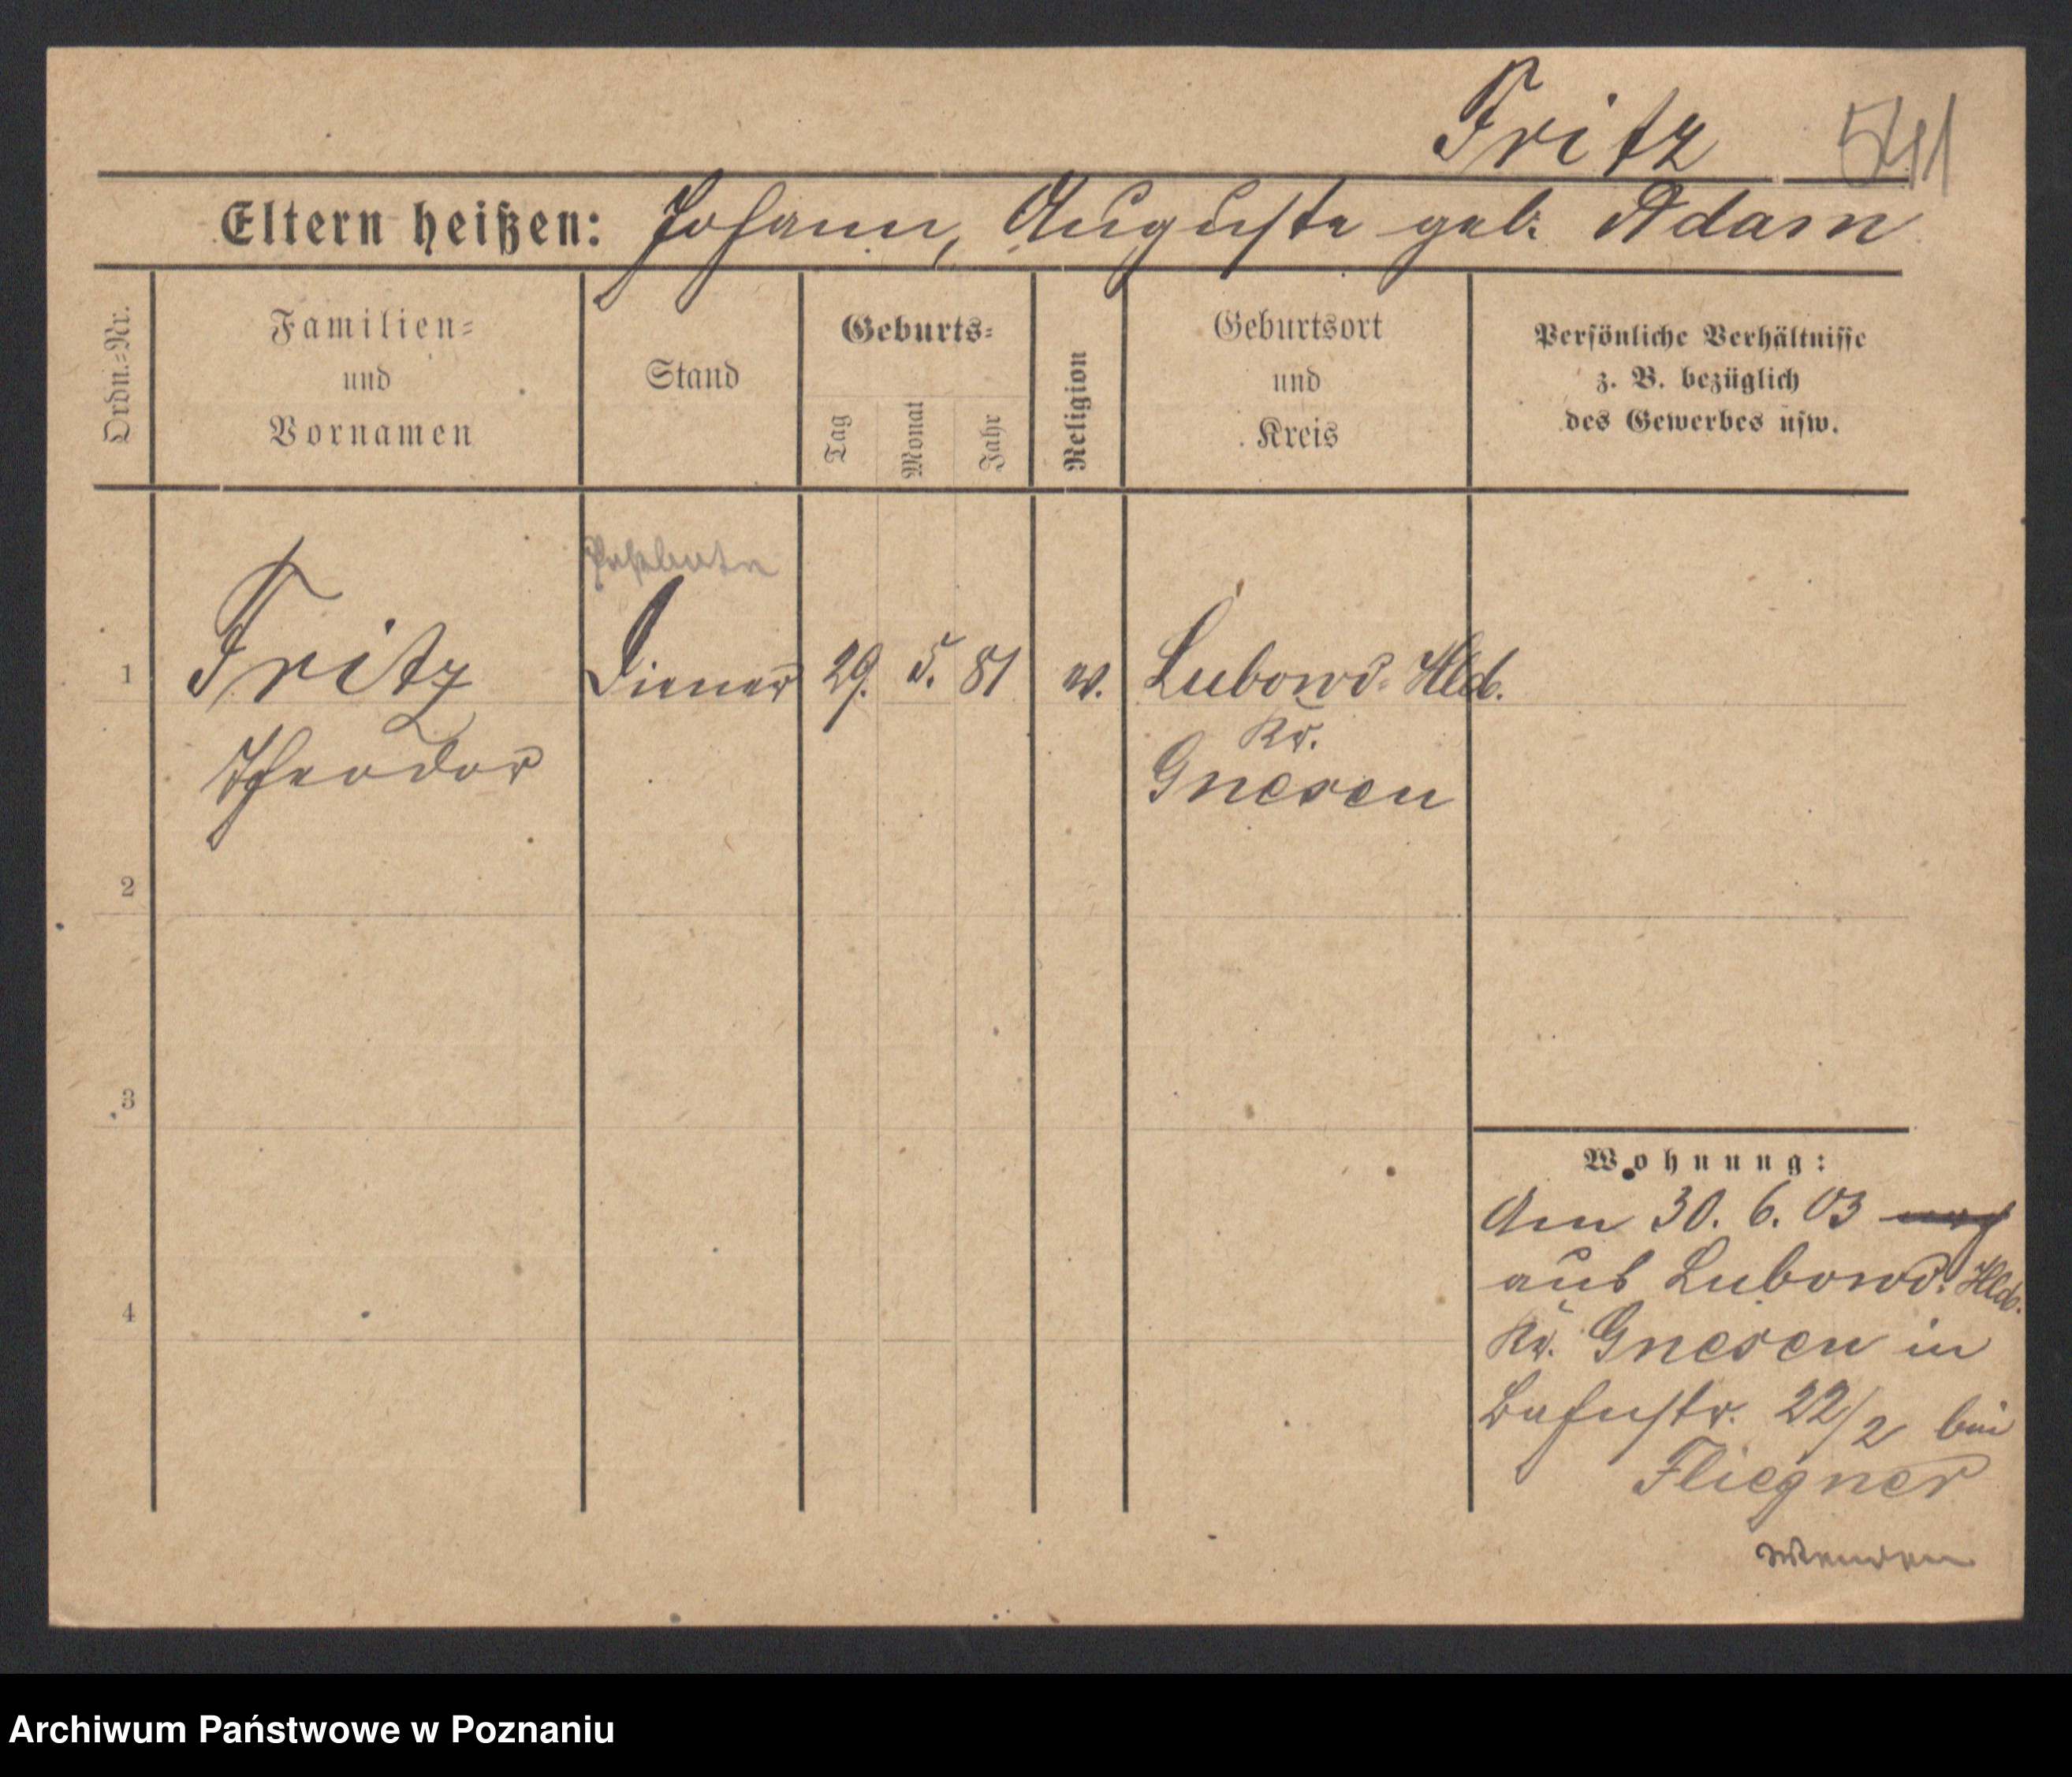 Fritz 541
Eltern heißen: Johann, Auguste geb. Adam
Ordn.=Nr.
Familien=
und
Vornamen
Stand
Geburts=
Tag
Monat
Jahr
Religion
Geburtsort
und
Kreis
Persönliche Verhältnisse
z. B. bezüglich
des Gewerbes usw.
Postbote
1 Fritz Diener 29. 5. 81 ev. Lubowo. Hld.
Kr.
Theodor Gnesen
2
3
4
Wohnung:
Am 30. 6. 03
aus Lubowo. Hld.
Kr. Gnesen in
Bahnstr. 22/2 bei
Fliegner
Wenden
Archiwum Państwowe w Poznaniu